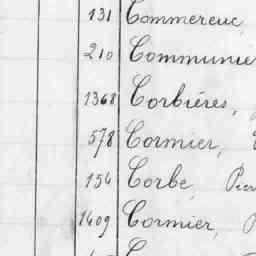 131 Commereuc
210 Communie
1368 Corbiéres,
578 Cormier,
154 Corbe, Pier
1409 Cormier, P